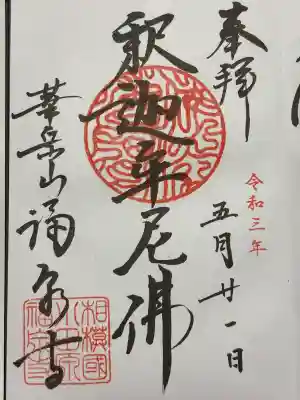 奉拝
令和三年
五月廿一日
釋迦牟尼佛
華岳山福泉寺
相模國